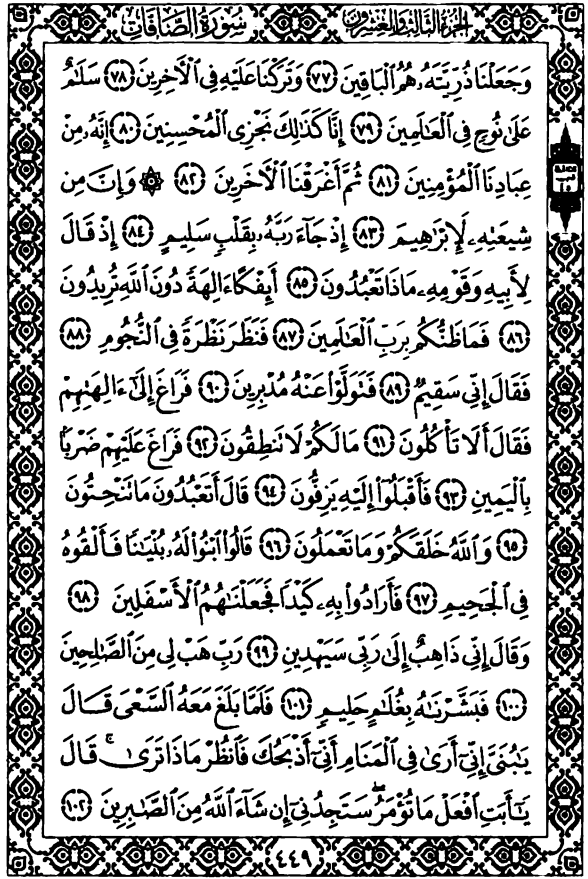 الجزء الثالث والعشرون سورة الصافات
وَجَعَلْنَا ذُرِّيَّتَهُۥ هُمُ ٱلْبَاقِينَ ٧٧ وَتَرَكْنَا عَلَيْهِ فِى ٱلْءَاخِرِينَ ٧٨ سَلَٰمٌ
عَلَىٰ نُوحٍ فِى ٱلْعَٰلَمِينَ ٧٩ إِنَّا كَذَٰلِكَ نَجْزِى ٱلْمُحْسِنِينَ ٨٠ إِنَّهُۥ مِنْ
عِبَادِنَا ٱلْمُؤْمِنِينَ ٨١ ثُمَّ أَغْرَقْنَا ٱلْءَاخَرِينَ ٨٢ ۞ وَإِنَّ مِن
شِيعَتِهِۦ لَإِبْرَٰهِيمَ ٨٣ إِذْ جَآءَ رَبَّهُۥ بِقَلْبٍ سَلِيمٍ ٨٤ إِذْ قَالَ
لِأَبِيهِ وَقَوْمِهِۦ مَاذَا تَعْبُدُونَ ٨٥ أَئِفْكًا ءَالِهَةً دُونَ ٱللَّهِ تُرِيدُونَ
٨٦ فَمَا ظَنُّكُم بِرَبِّ ٱلْعَٰلَمِينَ ٨٧ فَنَظَرَ نَظْرَةً فِى ٱلنُّجُومِ ٨٨
فَقَالَ إِنِّى سَقِيمٌ ٨٩ فَتَوَلَّوْا۟ عَنْهُ مُدْبِرِينَ ٩٠ فَرَاغَ إِلَىٰٓ ءَالِهَتِهِمْ
فَقَالَ أَلَا تَأْكُلُونَ ٩١ مَا لَكُمْ لَا تَنطِقُونَ ٩٢ فَرَاغَ عَلَيْهِمْ ضَرْبًۢا
بِٱلْيَمِينِ ٩٣ فَأَقْبَلُوٓا۟ إِلَيْهِ يَزِفُّونَ ٩٤ قَالَ أَتَعْبُدُونَ مَا تَنْحِتُونَ
٩٥ وَٱللَّهُ خَلَقَكُمْ وَمَا تَعْمَلُونَ ٩٦ قَالُوا۟ ٱبْنُوا۟ لَهُۥ بُنْيَٰنًا فَأَلْقُوهُ
فِى ٱلْجَحِيمِ ٩٧ فَأَرَادُوا۟ بِهِۦ كَيْدًا فَجَعَلْنَٰهُمُ ٱلْأَسْفَلِينَ ٩٨
وَقَالَ إِنِّى ذَاهِبٌ إِلَىٰ رَبِّى سَيَهْدِينِ ٩٩ رَبِّ هَبْ لِى مِنَ ٱلصَّٰلِحِينَ
١٠٠ فَبَشَّرْنَٰهُ بِغُلَٰمٍ حَلِيمٍ ١٠١ فَلَمَّا بَلَغَ مَعَهُ ٱلسَّعْىَ قَالَ
يَٰبُنَىَّ إِنِّىٓ أَرَىٰ فِى ٱلْمَنَامِ أَنِّىٓ أَذْبَحُكَ فَٱنظُرْ مَاذَا تَرَىٰ ۚ قَالَ
يَٰٓأَبَتِ ٱفْعَلْ مَا تُؤْمَرُ ۖ سَتَجِدُنِىٓ إِن شَآءَ ٱللَّهُ مِنَ ٱلصَّٰبِرِينَ ١٠٢
٤٤٩